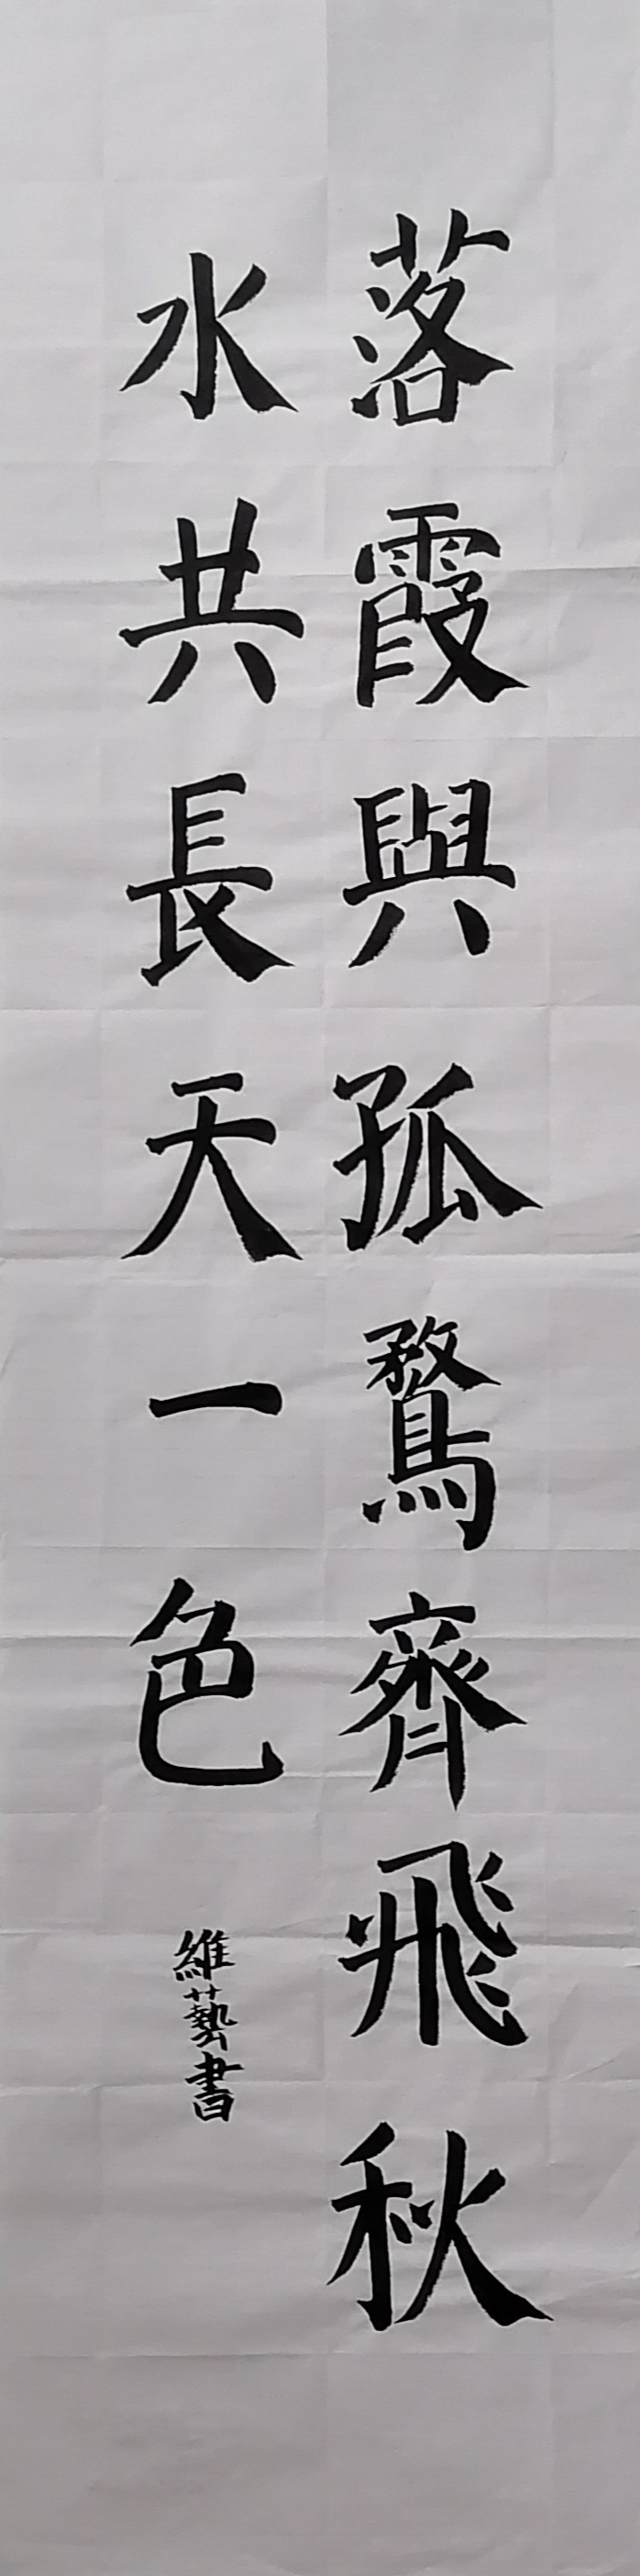 落霞與孤鶩齊飛秋
水共長天一色
維藝書